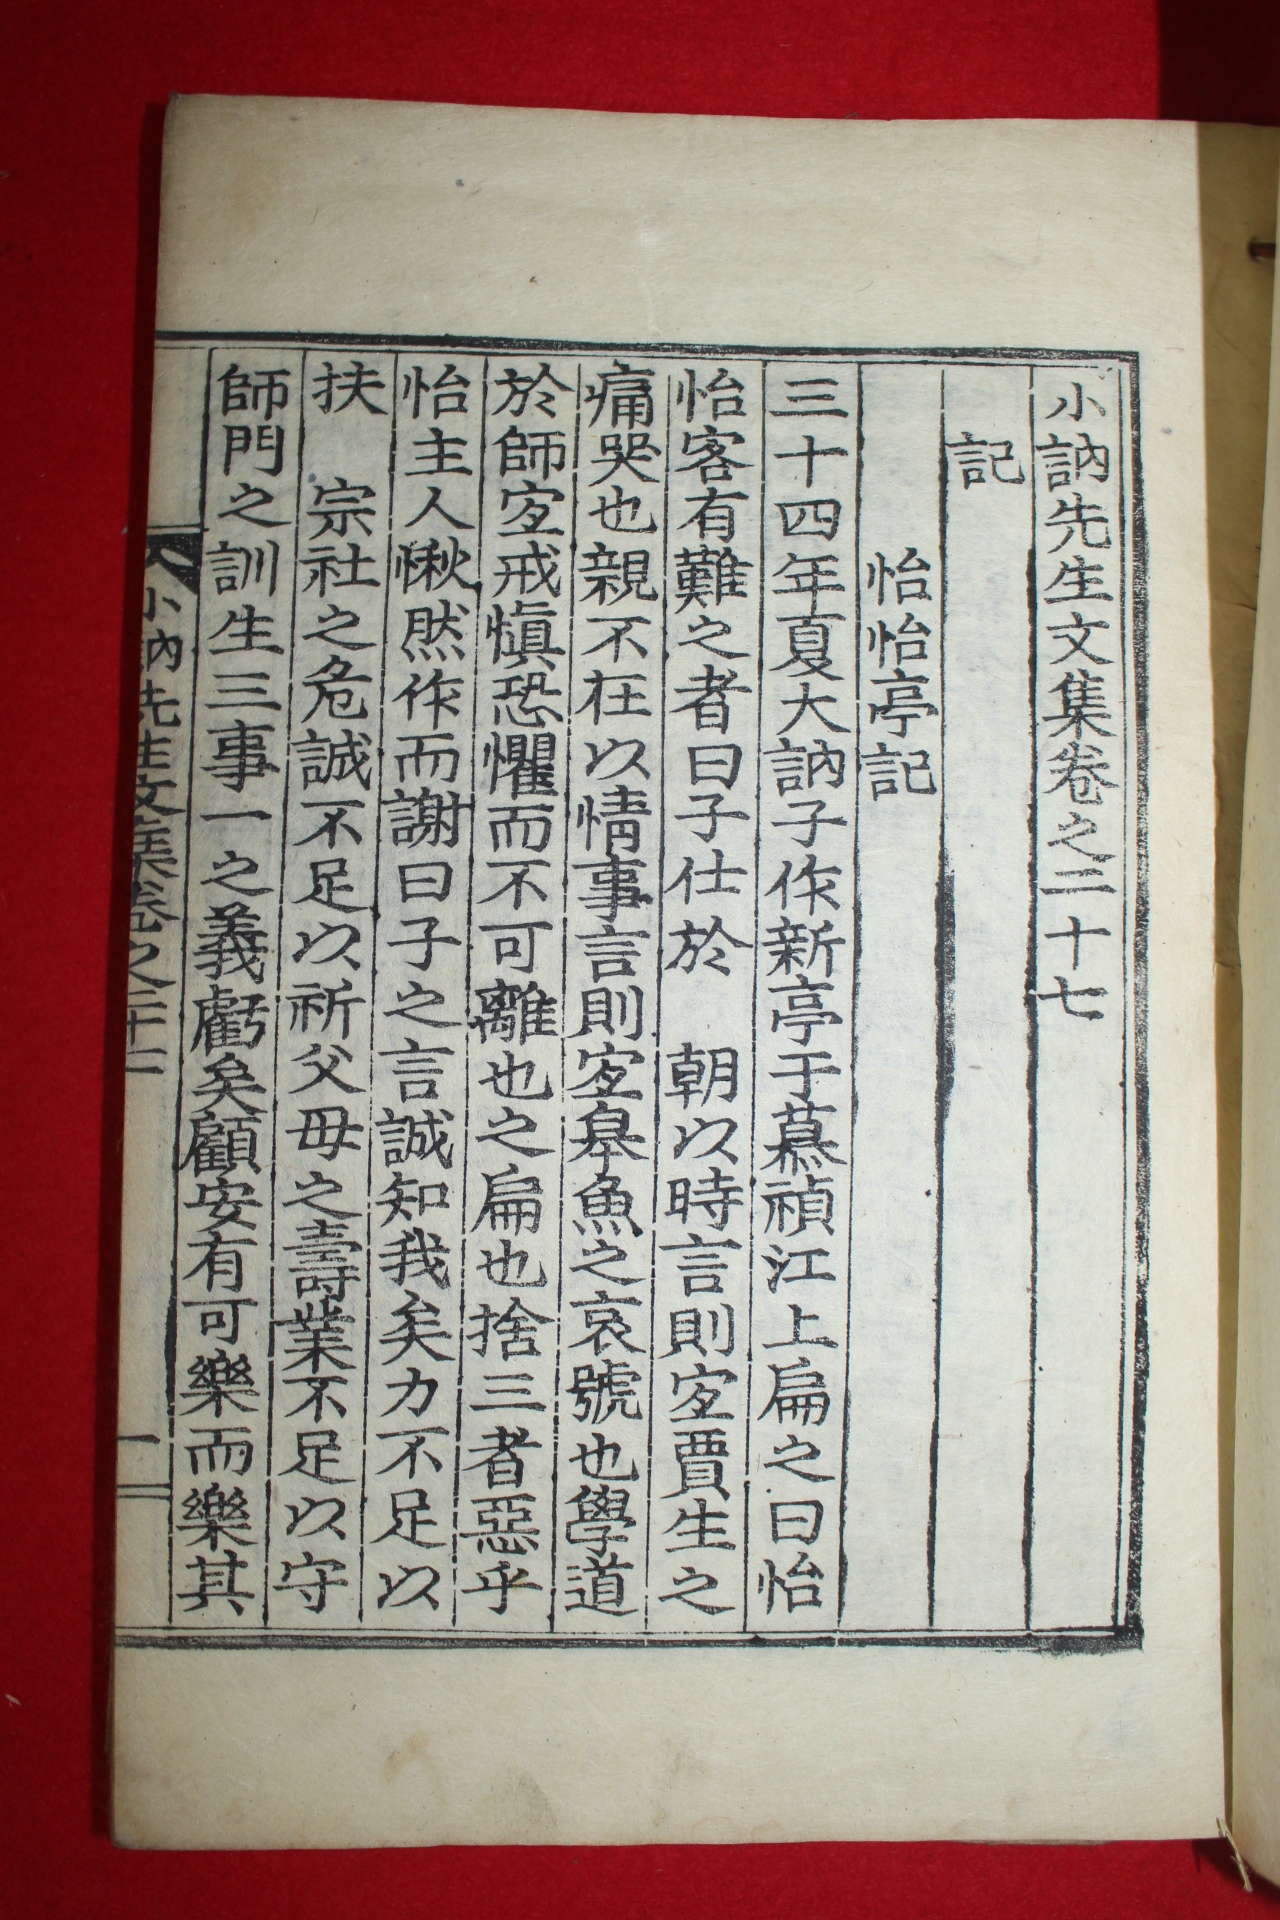 小訥先生文集卷之二十七
記
怡怡亭記
三十四年夏大訥子作新亭于慕禎江上扁之曰怡
怡客有難之者曰子仕於 朝以時言則宐賈生之
痛哭也親不在以情事言則宐臯魚之哀號也學道
於師宐戒愼恐懼而不可離也之扁也捨三者惡乎
怡主人愀然作而謝曰子之言誠知我矣力不足以
扶 宗社之危誠不足以祈父母之壽業不足以守
師門之訓生三事一之義虧矣顧安有可樂而樂其
小訥先生文集卷之二十七 一